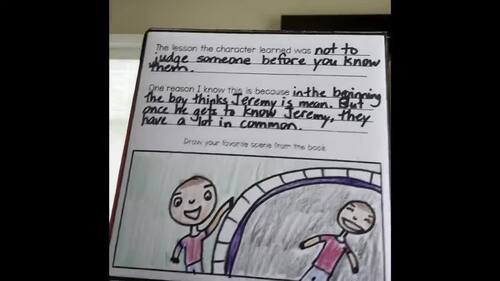 The lesson the character learned was not to
judge someone before you know
them.
One reason I know this is because in the beginning
the boy thinks Jeremy is mean. But
once he gets to know Jeremy, they
have a lot in common.
Draw your favorite scene from the book